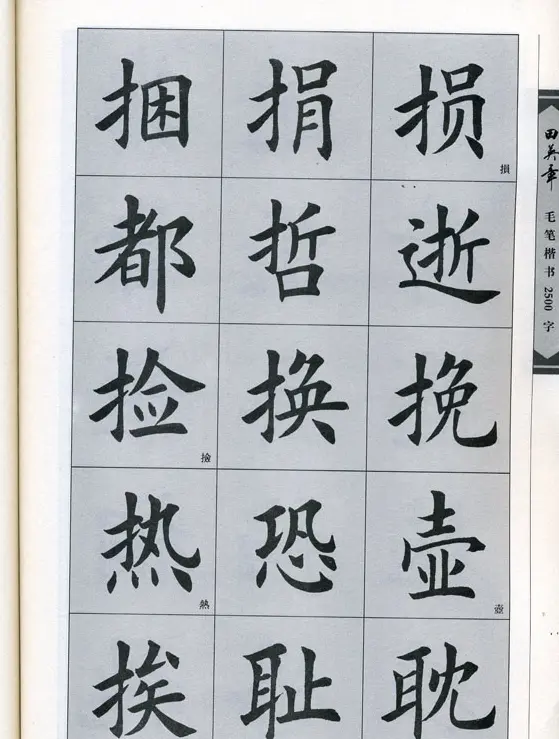 捆 捐 损 損
都 哲 逝
捡 撿 换 挽
热 熱 恐 壶 壺
挨 耻 耽
田英章 毛笔楷书2500字